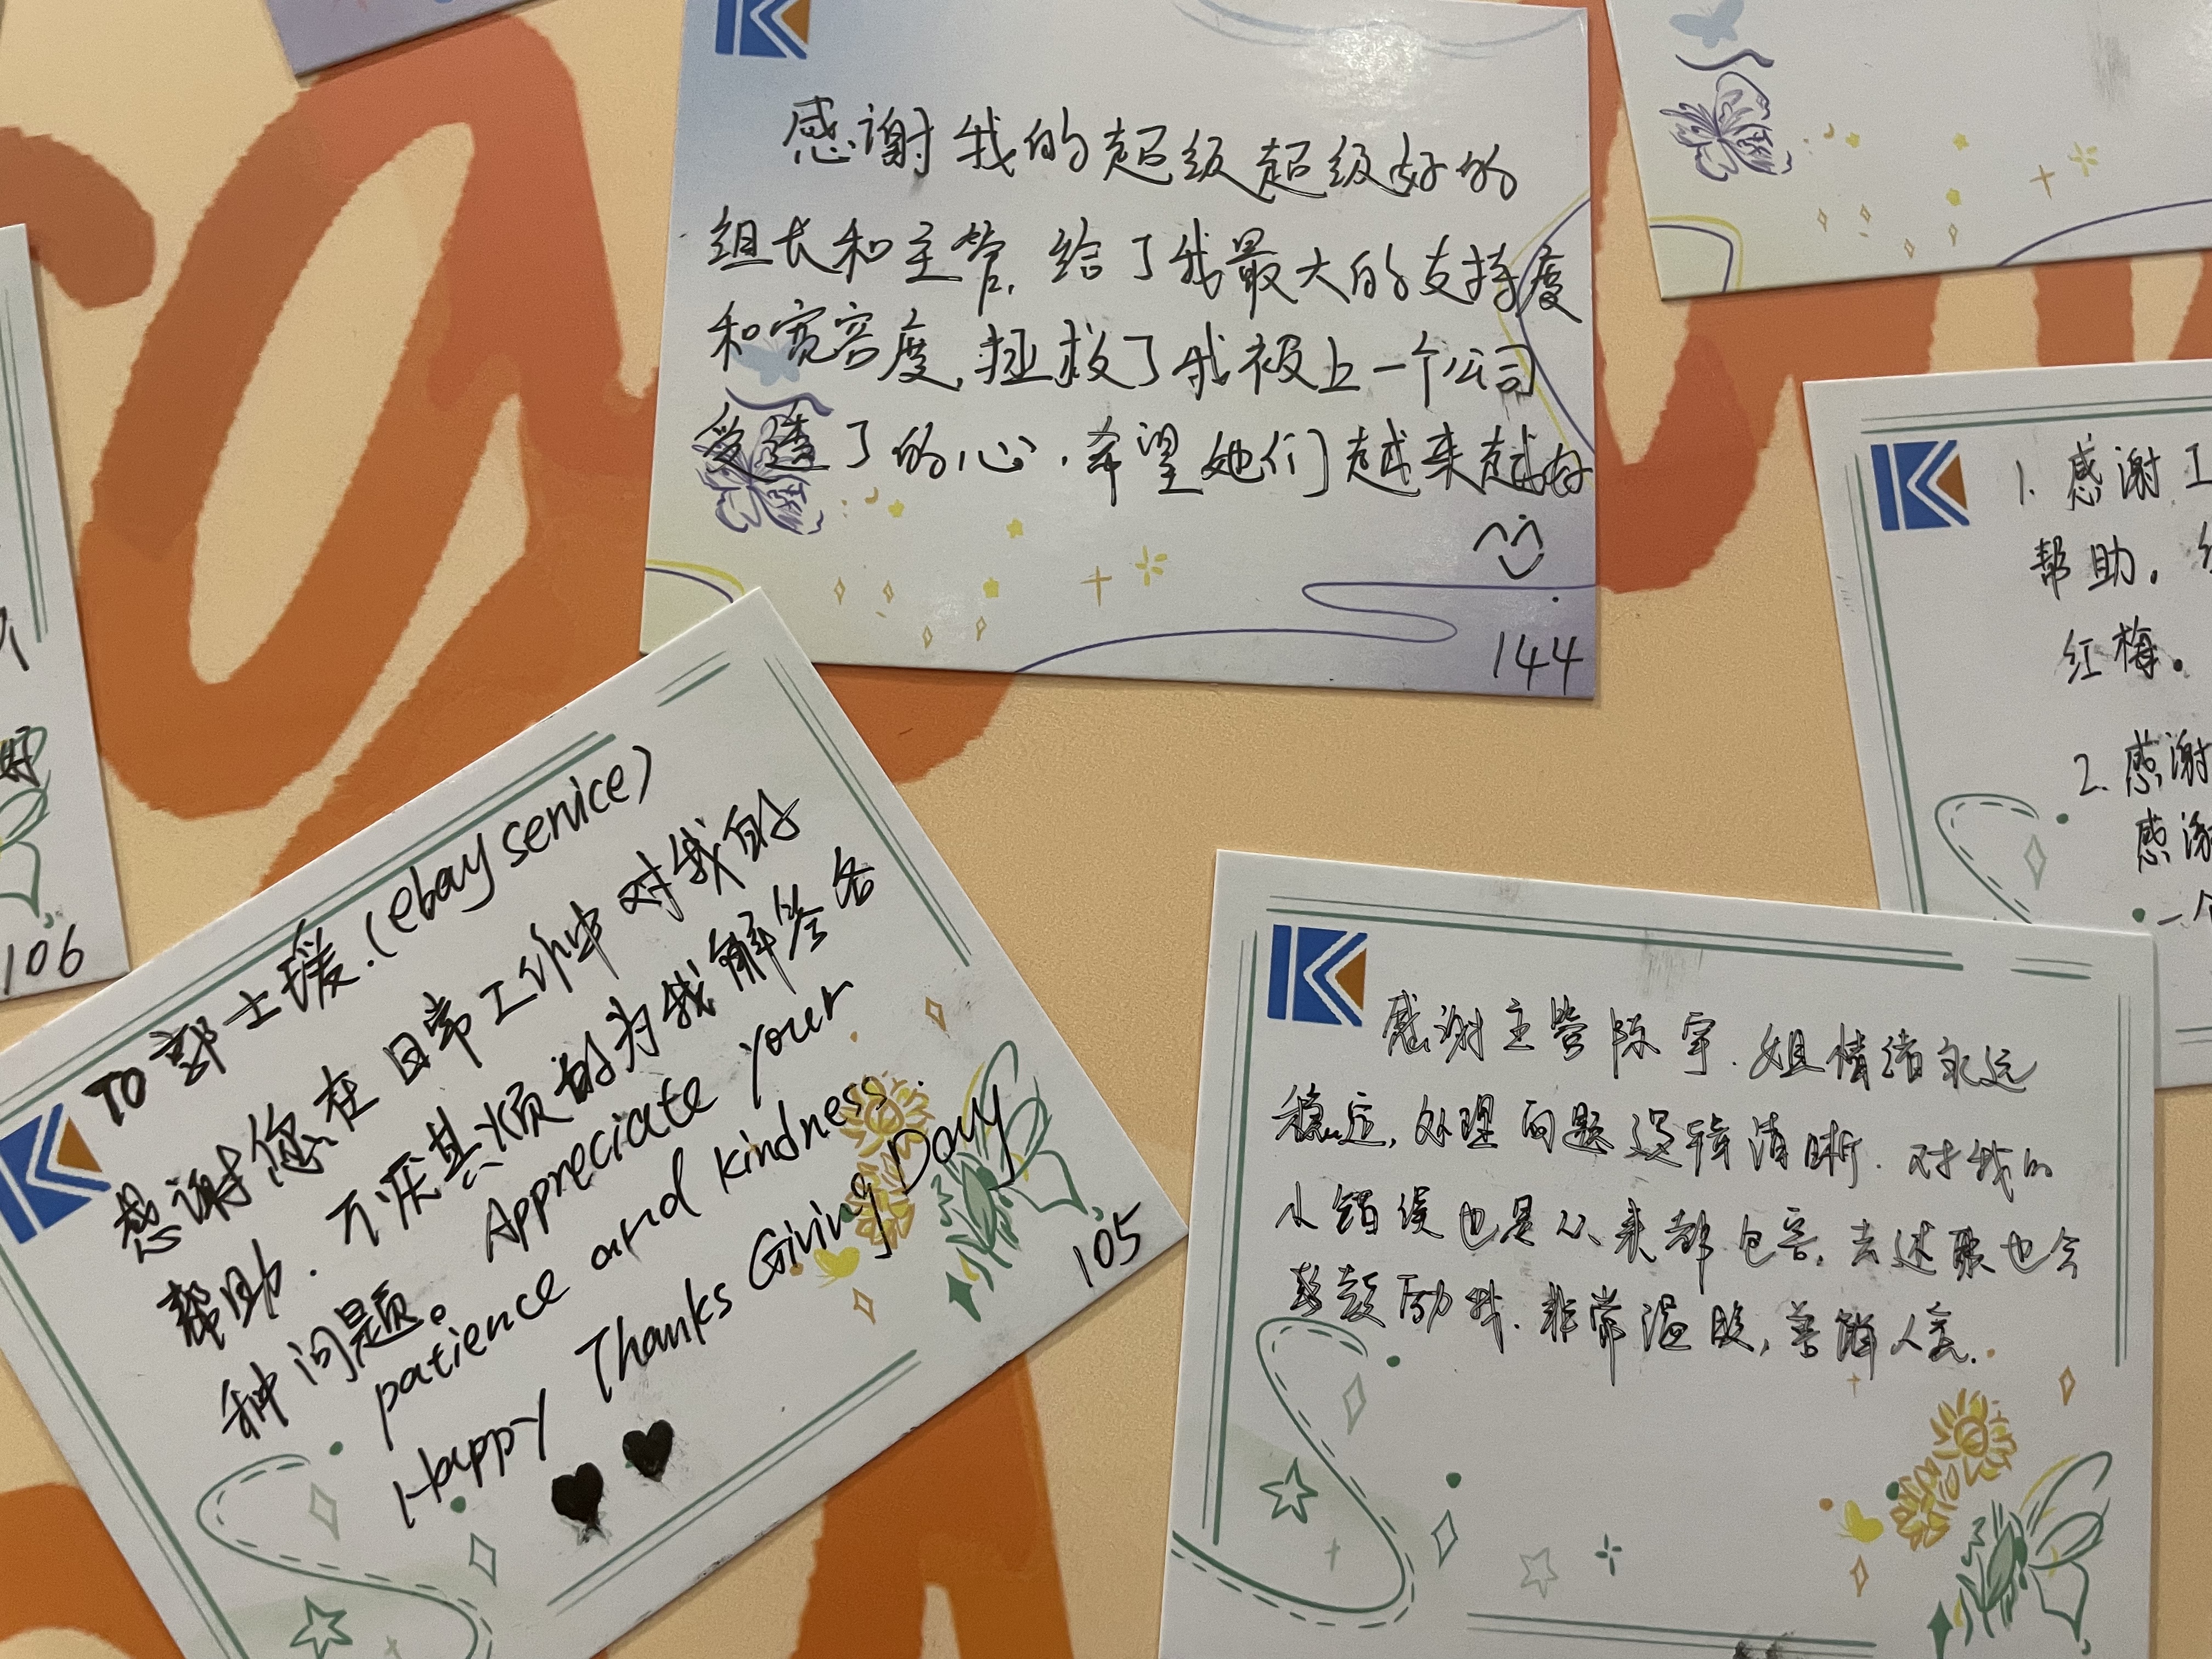 感谢我的超级超级好的
组长和主管，给了我最大的支持度
和宽容度，拯救了我被上一个公司
受遭了的心，希望她们越来越好
144
TO 郭士瑗.(ebay service)
感谢您在日常工作中对我的
帮助.不厌其烦的为我解答各
种问题。Appreciate your
patience and kindness.
Happy Thanks Giving Day
105
106
感谢主管陈宇.姐情绪永远
稳定,处理问题逻辑清晰.对我的
小错误也是从来都包容,去述职也会
鼓励我.非常温暖,善解人意.
1.感谢工
帮助.
红梅.
2.感谢
感谢
一个